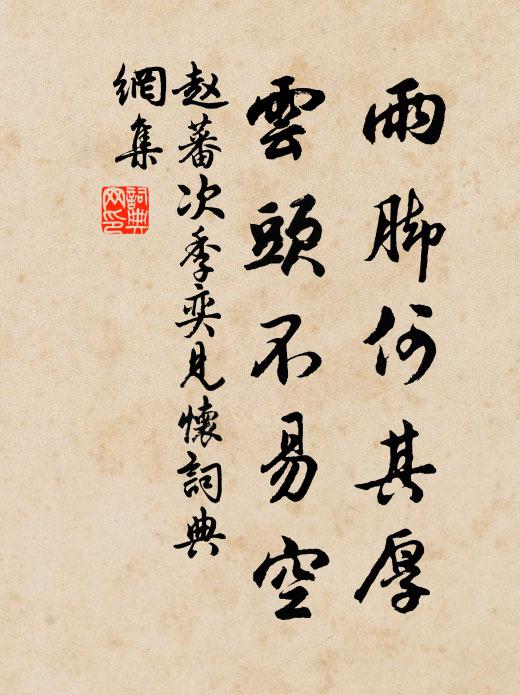 雨脚何其厚
雲頭不易空
赵蕃次季奕見懷詞典
網集
詞典
网印